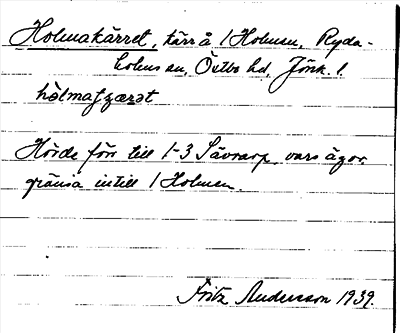 Holmakärret, kärr å 1 Holmen, Ryda-
holms sn, Östbo hd, Jönk. l.
hòlmaʃærət
Hörde förr till 1-3 Sävrarp, vars ägor
gränsa intill 1 Holmen.
Fritz Andersson 1939.